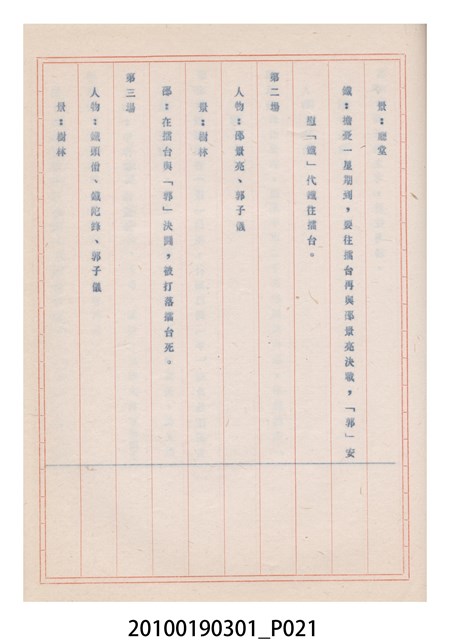 景：廳堂
鐵：擔憂一星期到，要往擂台再與邵景亮決戰，「郭」安
慰「鐵」代鐵往擂台。
第二場
人物：邵景亮、郭子儀
景：樹林
邵：在擂台與「郭」決鬪，被打落擂台死。
第三場
人物：鐵頭僧、鐵陀錚、郭子儀
景：樹林
20100190301_P021